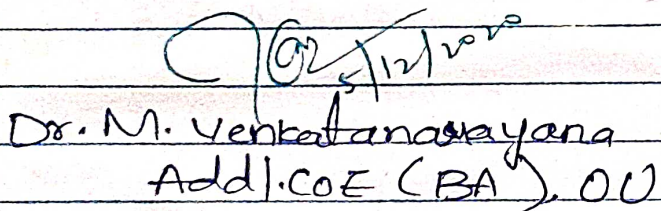 5/12/2020
Dr. M. Venkatanarayana
Addl. COE (BA), OU